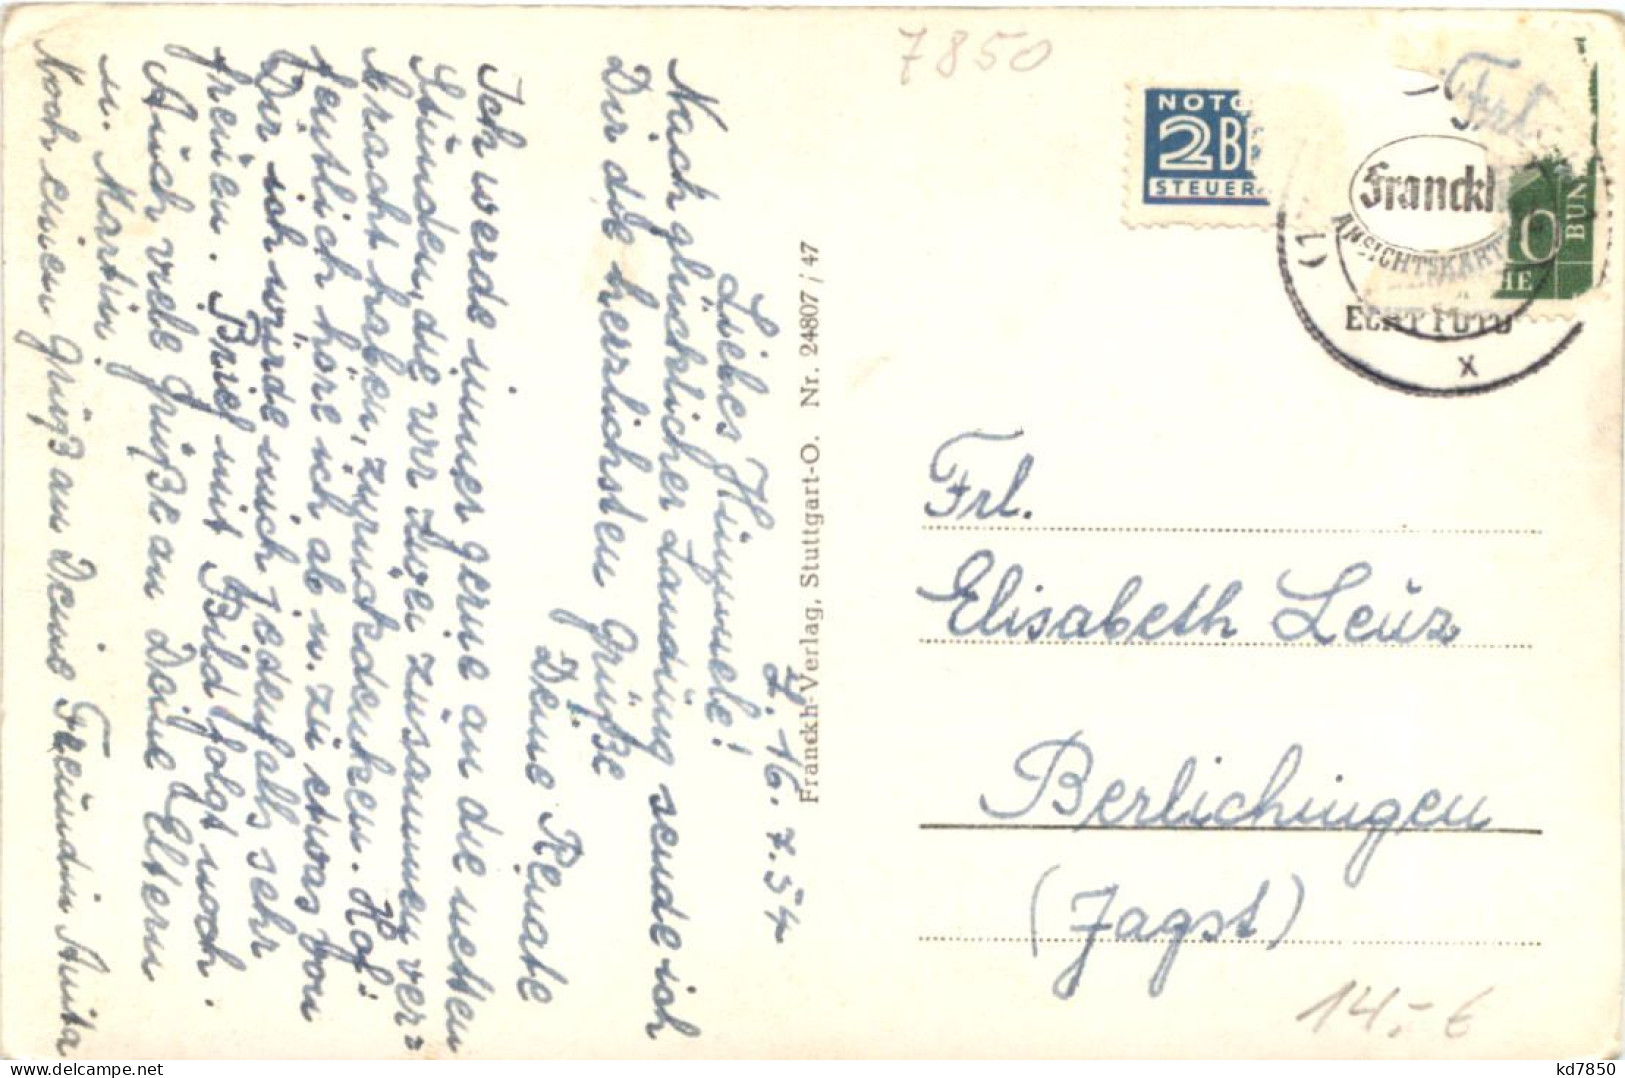 7850
NOTO
2 BE
STEUER
Frl.
Franckh
ANSICHTSKART
ECHT FOTO
(1
x
0
BUN
HE
Z. 16. 7. 54
Liebes Hümmele!
Nach glücklicher Landung sende ich
Dir die herzlichsten Grüße
Deine Renate
Ich werde immer gerne an die netten
Stunden, die wir zwei zusammen ver=
bracht haben, zurückdenken. Hof=
fentlich höre ich ab u. zu etwas von
Dir ich würde mich jedenfalls sehr
freuen. Brief mit Bild folgt noch.
Auch viele Grüße an Deine Eltern
u. Martin.
Noch einen Gruß an Deine Freundin Anita
Franckh-Verlag, Stuttgart-O. Nr. 24807/47
Frl.
Elisabeth Leuz
Berlichingen
(Jagst)
14,- €
kd7850